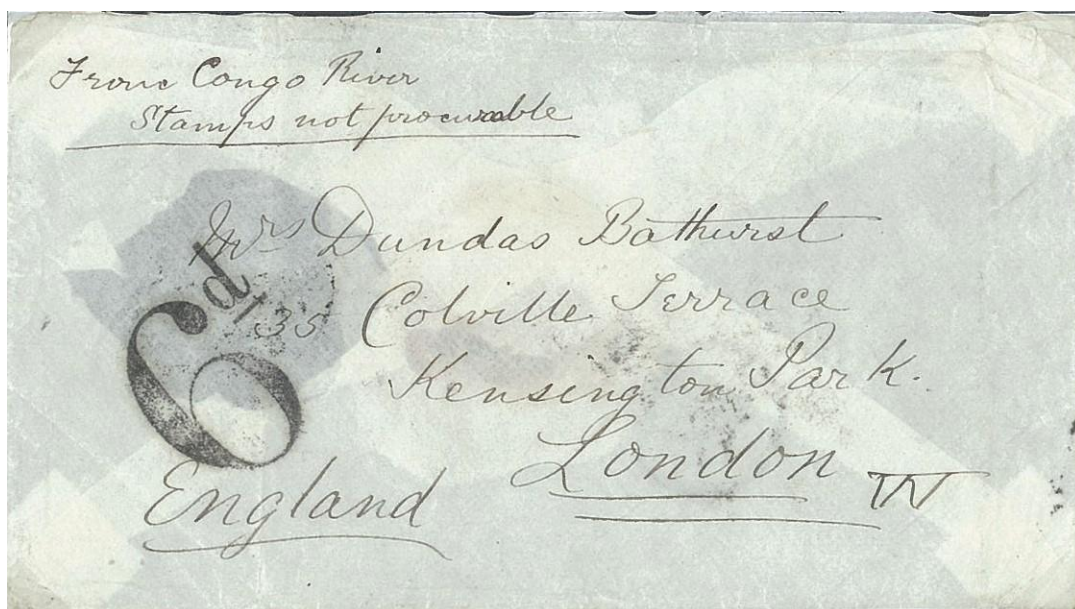 From Congo River
Stamps not procurable
Mrs Dundas Bathurst
35 Colville Terrace
Kensington Park.
London W
England
6d